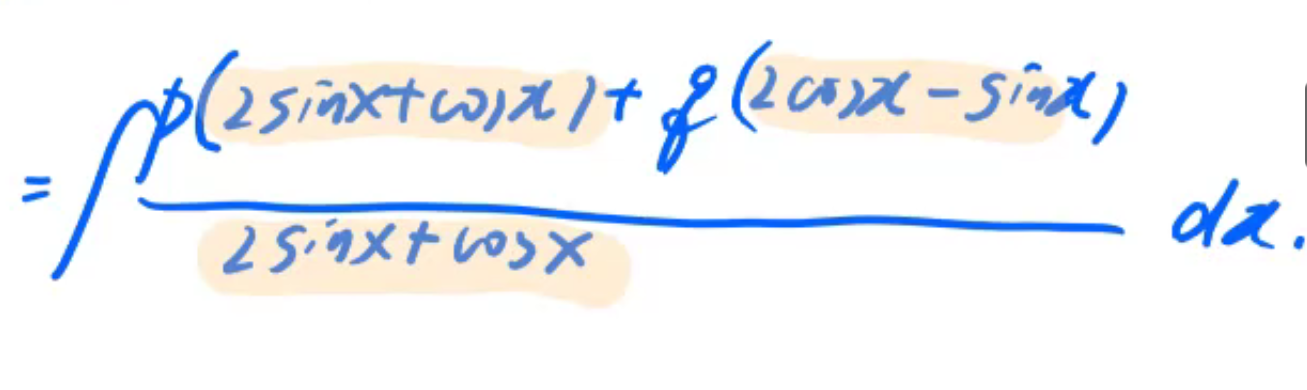 = ∫ p(2sinx+cosx)+q(2cosx-sinx)
2sinx+cosx dx.